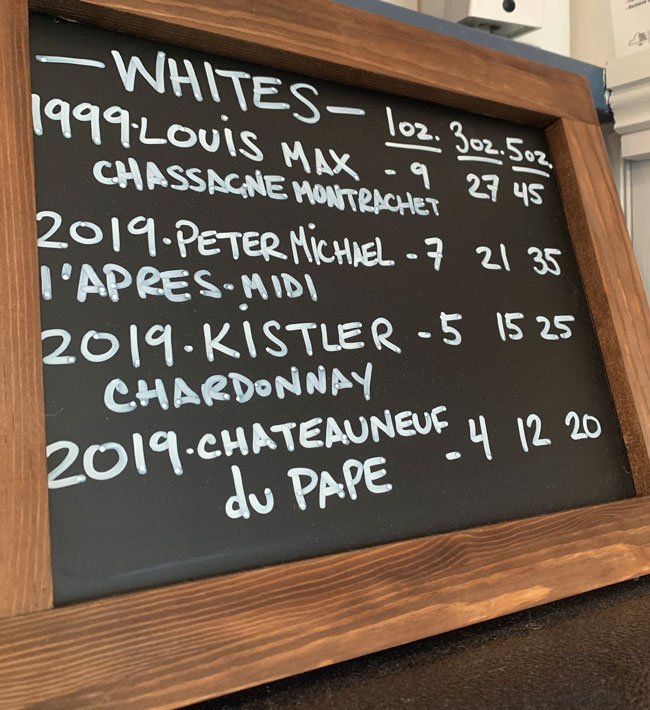 — WHITES —
1oz. 3oz. 5oz.
1999·LOUIS MAX - 9 27 45
CHASSAGNE MONTRACHET
2019·PETER MICHAEL - 7 21 35
l'APRES-MIDI
2019·KISTLER - 5 15 25
CHARDONNAY
2019·CHATEAUNEUF - 4 12 20
du PAPE